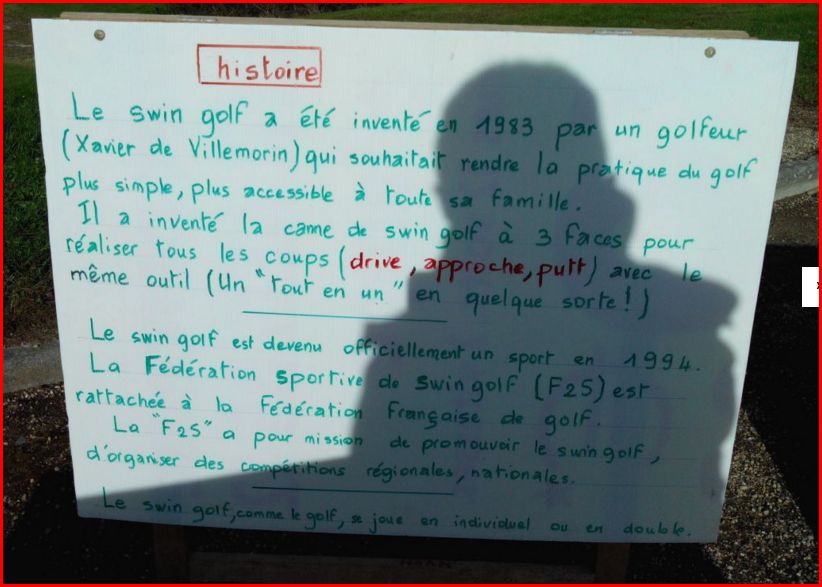 histoire
Le swin golf a été inventé en 1983 par un golfeur
(Xavier de Villemorin) qui souhaitait rendre la pratique du golf
plus simple, plus accessible à toute sa famille.
Il a inventé la canne de swin golf à 3 faces pour
réaliser tous les coups (drive, approche, putt) avec le
même outil (Un "tout en un" en quelque sorte!)
Le swin golf est devenu officiellement un sport en 1994.
La Fédération Sportive de Swin golf (F2S) est
rattachée à la Fédération Française de golf.
La "F2S" a pour mission de promouvoir le swin golf,
d'organiser des compétitions régionales, nationales.
Le swin golf, comme le golf, se joue en individuel ou en double.